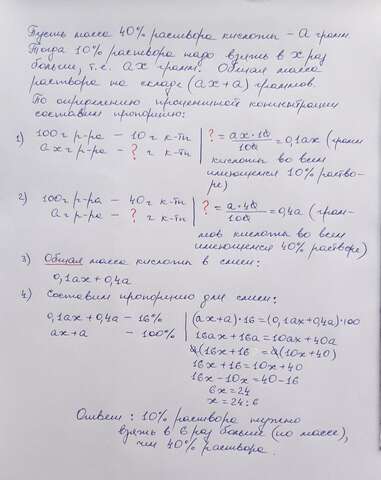 Пусть масса 40% раствора кислоты - а грамм.
Тогда 10% раствора надо взять в х раз
больше, т.е. ах грамм. Общая масса
раствора на складе (ах+а) граммов.
По определению процентной концентрации
составим пропорцию:
1) 100г р-ра – 10г к-ты | ? = ах·10/100 = 0,1ах (грамм
ах г р-ра – ? г к-ты | кислоты во всём
имеющемся 10% раство-
ре)
2) 100г р-ра – 40г к-ты | ? = а·40/100 = 0,4а (грам-
а г р-ра – ? г к-ты | мов кислоты во всём
имеющемся 40% растворе)
3) Общая масса кислоты в смеси:
0,1ах + 0,4а
4) Составим пропорцию для смеси:
0,1ах + 0,4а – 16% | (ах+а)·16 = (0,1ах+0,4а)·100
ах+а – 100% | 16ах + 16а = 10ах + 40а
а(16х+16 = а(10х+40)
16х + 16 = 10х + 40
16х - 10х = 40 - 16
6х = 24
х = 24:6
Ответ: 10% раствора нужно
взять в 6 раз больше (по массе),
чем 40% раствора.